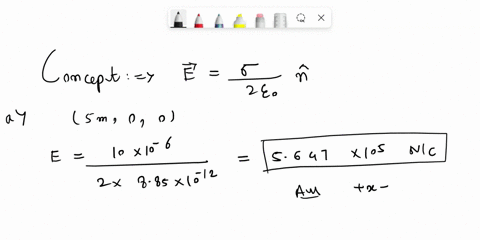 Concept :=> E⃗ = σ / 2ε₀ n̂
a) (5m, 0, 0)
E = 10 × 10⁻⁶ / 2 × 8.85 × 10⁻¹² = 5.647 × 10⁵ N/C
Ans +x -